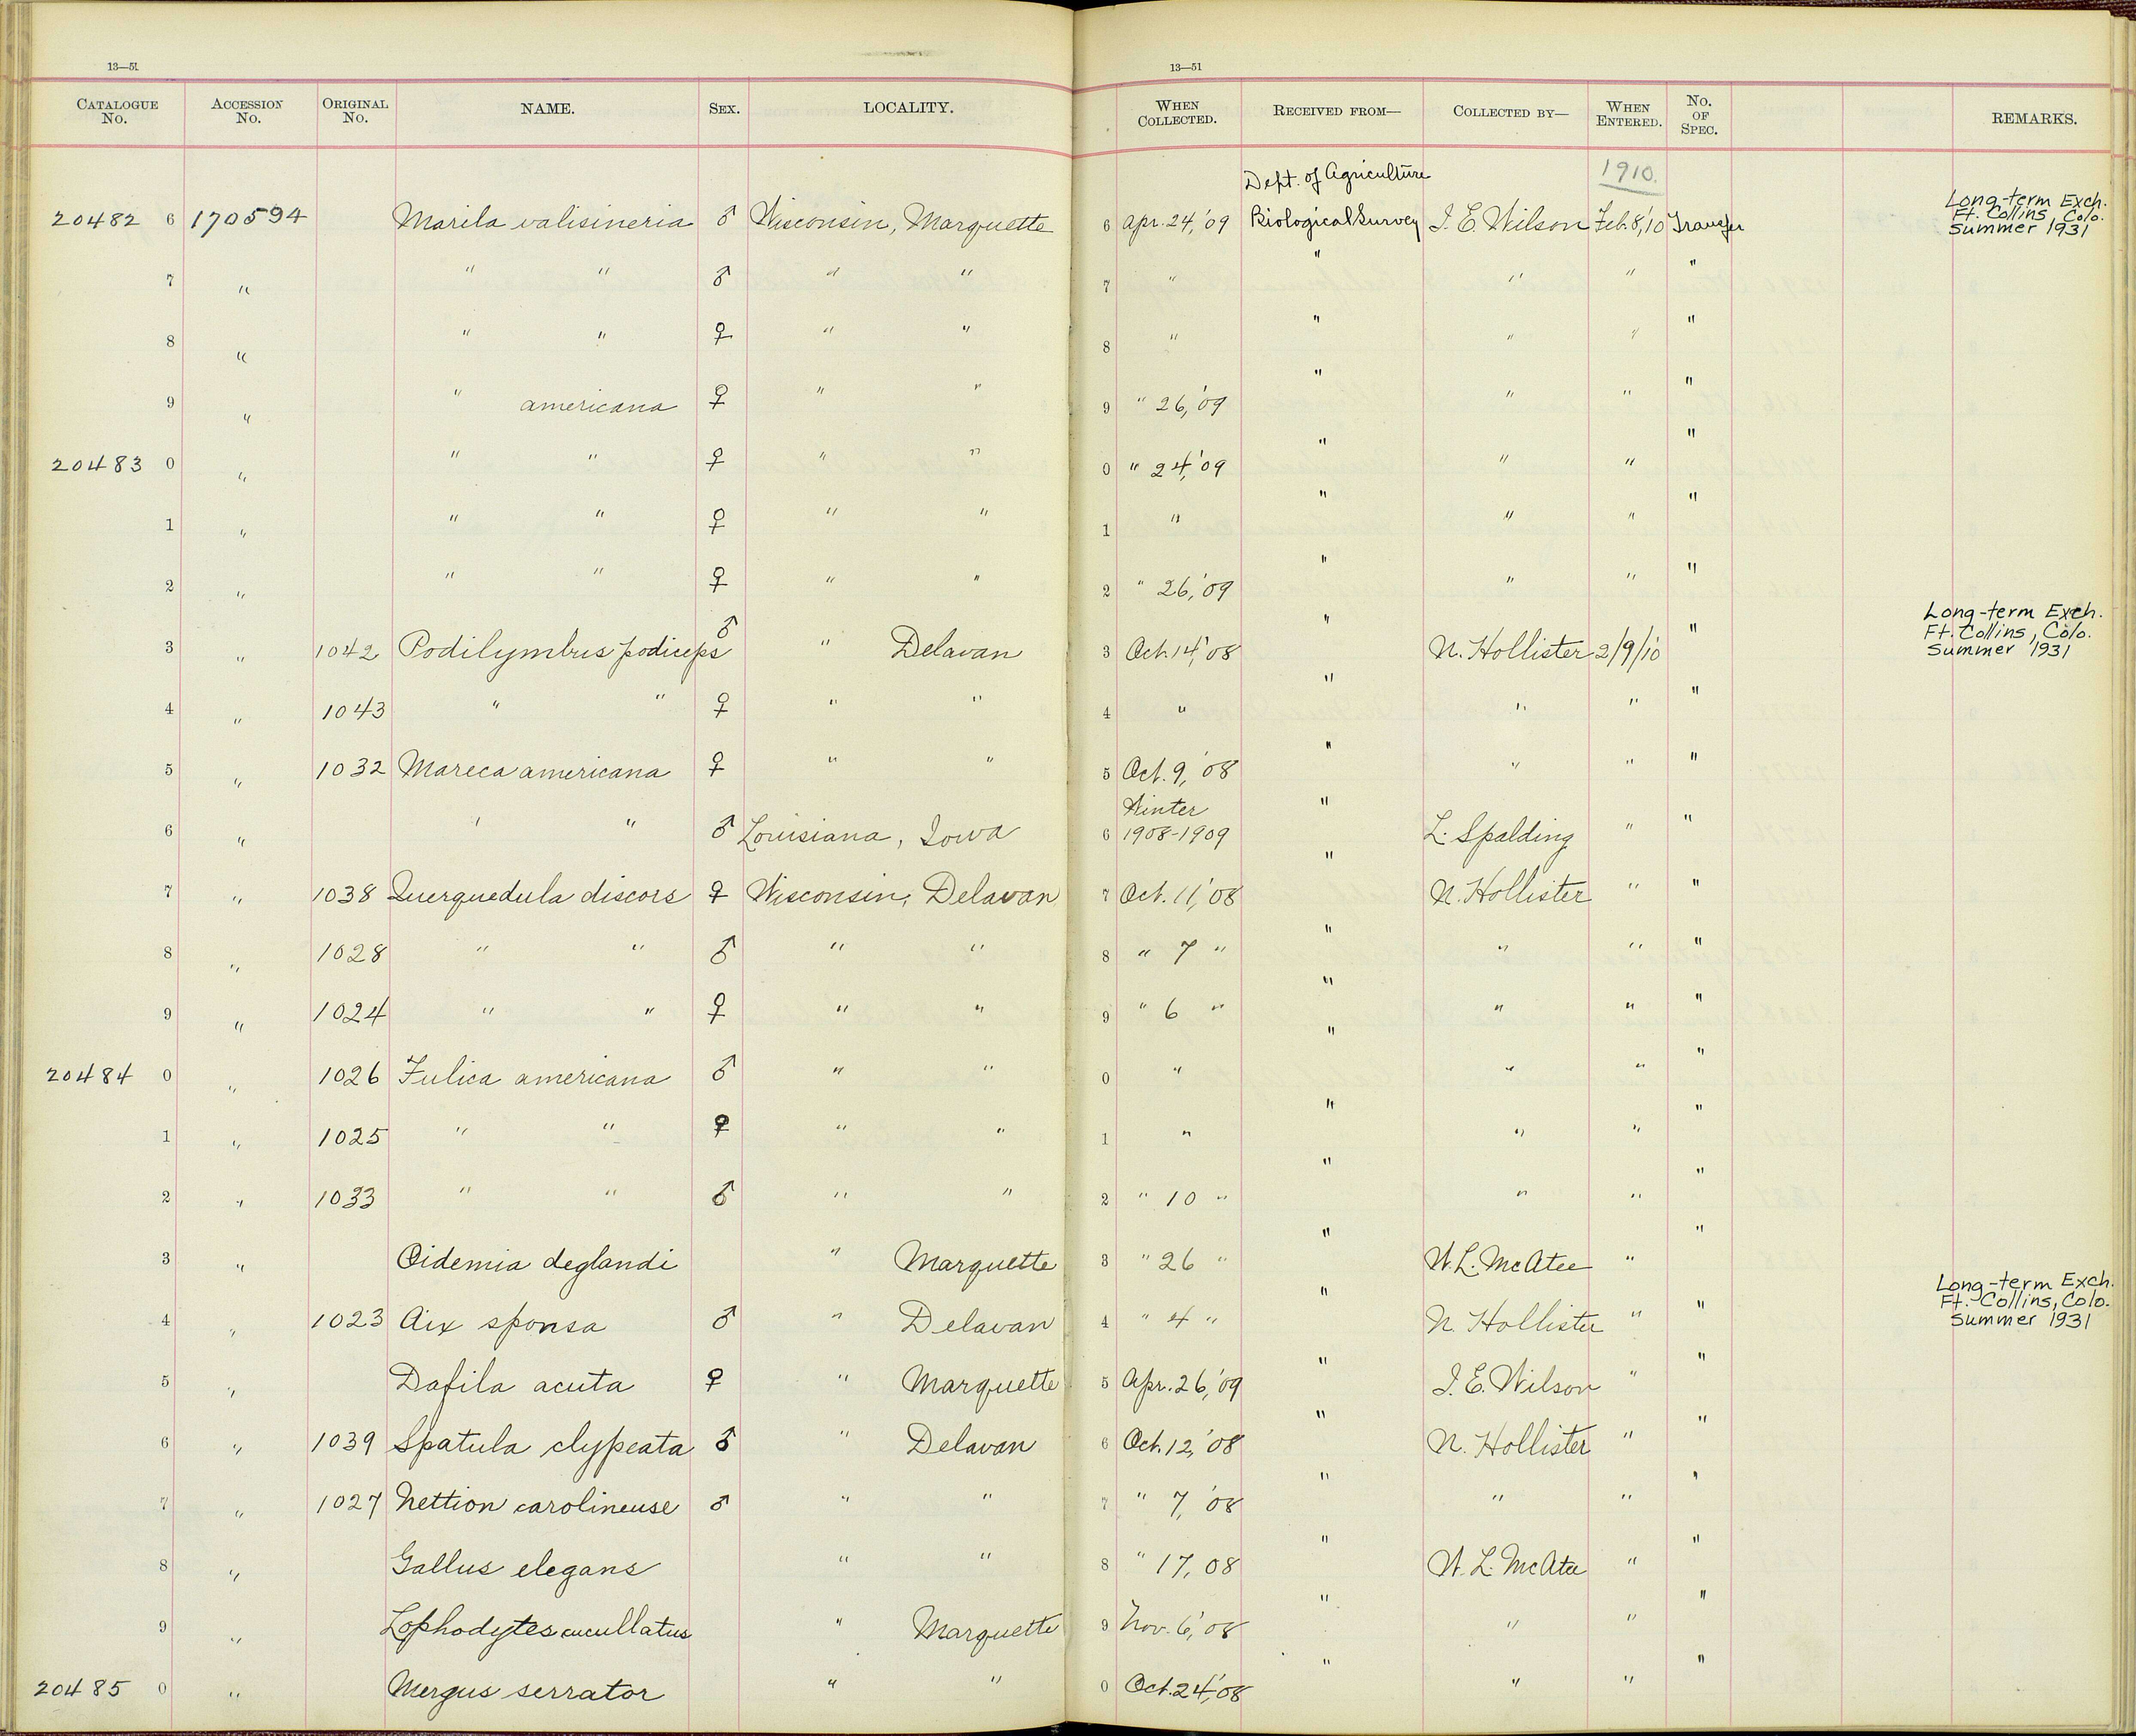 13—51
13—51
CATALOGUE No. ACCESSION No. ORIGINAL No. NAME. SEX. LOCALITY. WHEN COLLECTED. RECEIVED FROM— COLLECTED BY— WHEN ENTERED. No. OF SPEC. REMARKS.
Dept. of Agriculture 1910.
20482 6 170594 Marila valisineria ♂ Wisconsin, Marquette 6 Apr. 24, '09 Biological Survey I. E. Wilson Feb. 8, '10 Transfer Long-term Exch. Ft. Collins, Colo. Summer 1931
7 " " " ♂ " " 7 " " " " "
8 " " " ♀ " " 8 " " " " "
9 " " americana ♀ " " 9 " 26, '09 " " " "
20483 0 " " " ♀ " " 0 " 24, '09 " " " "
1 " " " ♀ " " 1 " " " " "
2 " " " ♀ " " 2 " 26, '09 " " " "
3 " 1042 Podilymbus podiceps ♂ " Delavan 3 Oct. 14, '08 " N. Hollister 2/9/10 " Long-term Exch. Ft. Collins, Colo. Summer 1931
4 " 1043 " " ♀ " " 4 " " " " "
5 " 1032 Mareca americana ♀ " " 5 Oct. 9, '08 " " " "
6 " " " ♂ Louisiana, Iowa 6 Winter 1908-1909 " L. Spalding " "
7 " 1038 Querquedula discors ♀ Wisconsin, Delavan 7 Oct. 11, '08 " N. Hollister " "
8 " 1028 " " ♂ " " 8 " 7 " " " " "
9 " 1024 " " ♀ " " 9 " 6 " " " " "
20484 0 " 1026 Fulica americana ♂ " " 0 " " " " "
1 " 1025 " " ♀ " " 1 " " " " "
2 " 1033 " " ♂ " " 2 " 10 " " " " "
3 " Oidemia deglandi " Marquette 3 " 26 " " W. L. McAtee " "
4 " 1023 Aix sponsa ♂ " Delavan 4 " 4 " " N. Hollister " " Long-term Exch. Ft. Collins, Colo. Summer 1931
5 " Dafila acuta ♀ " Marquette 5 Apr. 26, '09 " I. E. Wilson " "
6 " 1039 Spatula clypeata ♂ " Delavan 6 Oct. 12, '08 " N. Hollister " "
7 " 1027 Nettion carolinense ♂ " " 7 " 7, '08 " " " "
8 " Gallus elegans " " 8 " 17, 08 " W. L. McAtee " "
9 " Lophodytes cucullatus " Marquette 9 Nov. 6, '08 " " " "
20485 0 " Mergus serrator " " 0 Oct. 24, '08 " " " "